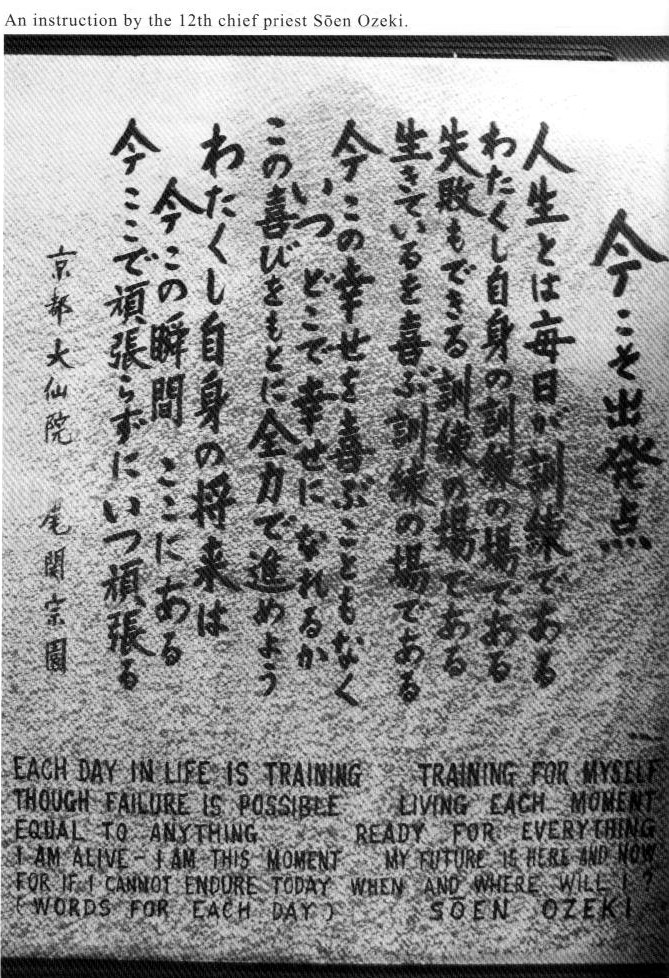 An instruction by the 12th chief priest Sōen Ozeki.
今こそ出発点
人生とは毎日が訓練である
わたくし自身の訓練の場である
失敗もできる訓練の場である
生きているを喜ぶ訓練の場である
今この幸せを喜ぶこともなく
いつ どこで幸せになれるか
この喜びをもとに全力で進めよう
わたくし自身の将来は
今この瞬間 ここにある
今ここで頑張らずにいつ頑張る
京都大仙院 尾関宗園
EACH DAY IN LIFE IS TRAINING TRAINING FOR MYSELF
THOUGH FAILURE IS POSSIBLE LIVING EACH MOMENT
EQUAL TO ANYTHING READY FOR EVERYTHING
I AM ALIVE - I AM THIS MOMENT MY FUTURE IS HERE AND NOW
FOR IF I CANNOT ENDURE TODAY WHEN AND WHERE WILL I ?
(WORDS FOR EACH DAY) SŌEN OZEKI